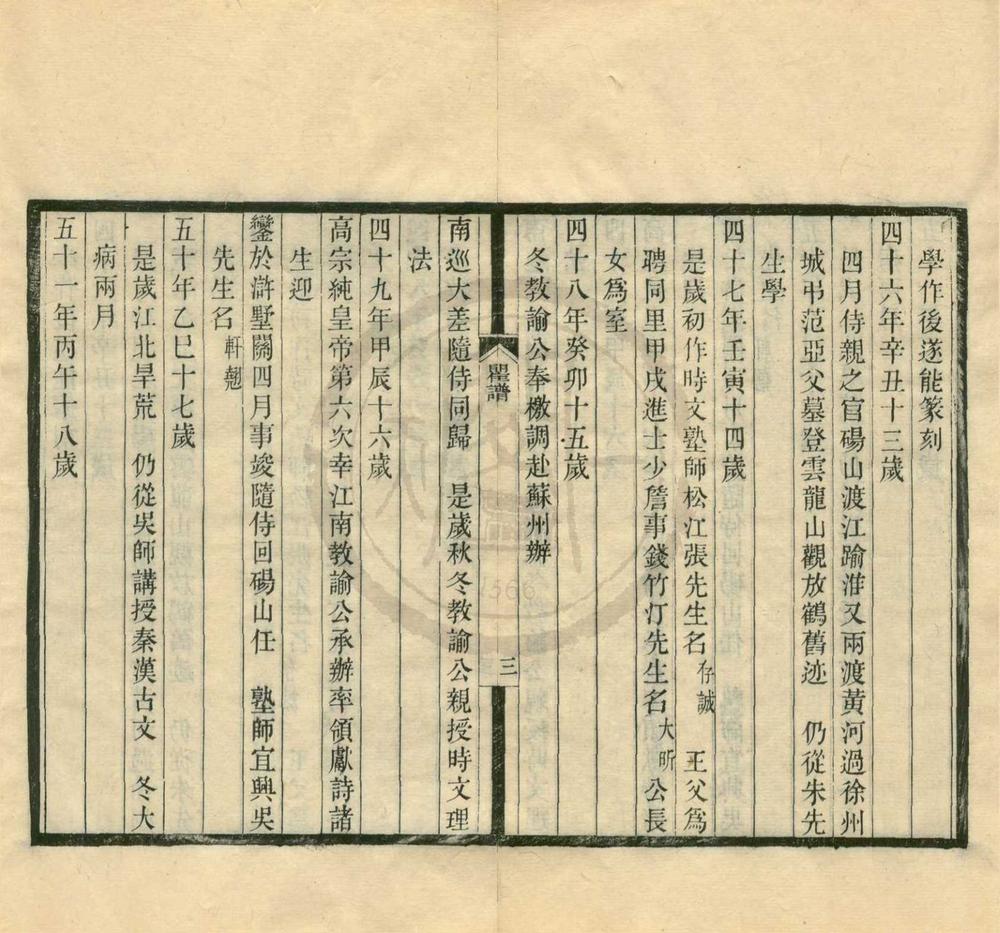 學作後遂能篆刻
四十六年辛丑十三歲
四月侍親之官碭山渡江踰淮又兩渡黃河過徐州
城弔范亞父墓登雲龍山觀放鶴舊迹　仍從朱先
生學
四十七年壬寅十四歲
是歲初作時文塾師松江張先生名存誠　王父爲
聘同里甲戌進士少詹事錢竹汀先生名大昕公長
女爲室
四十八年癸卯十五歲
冬教諭公奉檄調赴蘇州辦
瞿譜
三
南巡大差隨侍同歸　是歲秋冬教諭公親授時文理
法
四十九年甲辰十六歲
高宗純皇帝第六次幸江南教諭公承辦率領獻詩諸
生迎
鑾於滸墅關四月事竣隨侍回碭山任　塾師宜興吳
先生名軒翹
五十年乙巳十七歲
是歲江北旱荒　仍從吳師講授秦漢古文　冬大
病兩月
五十一年丙午十八歲